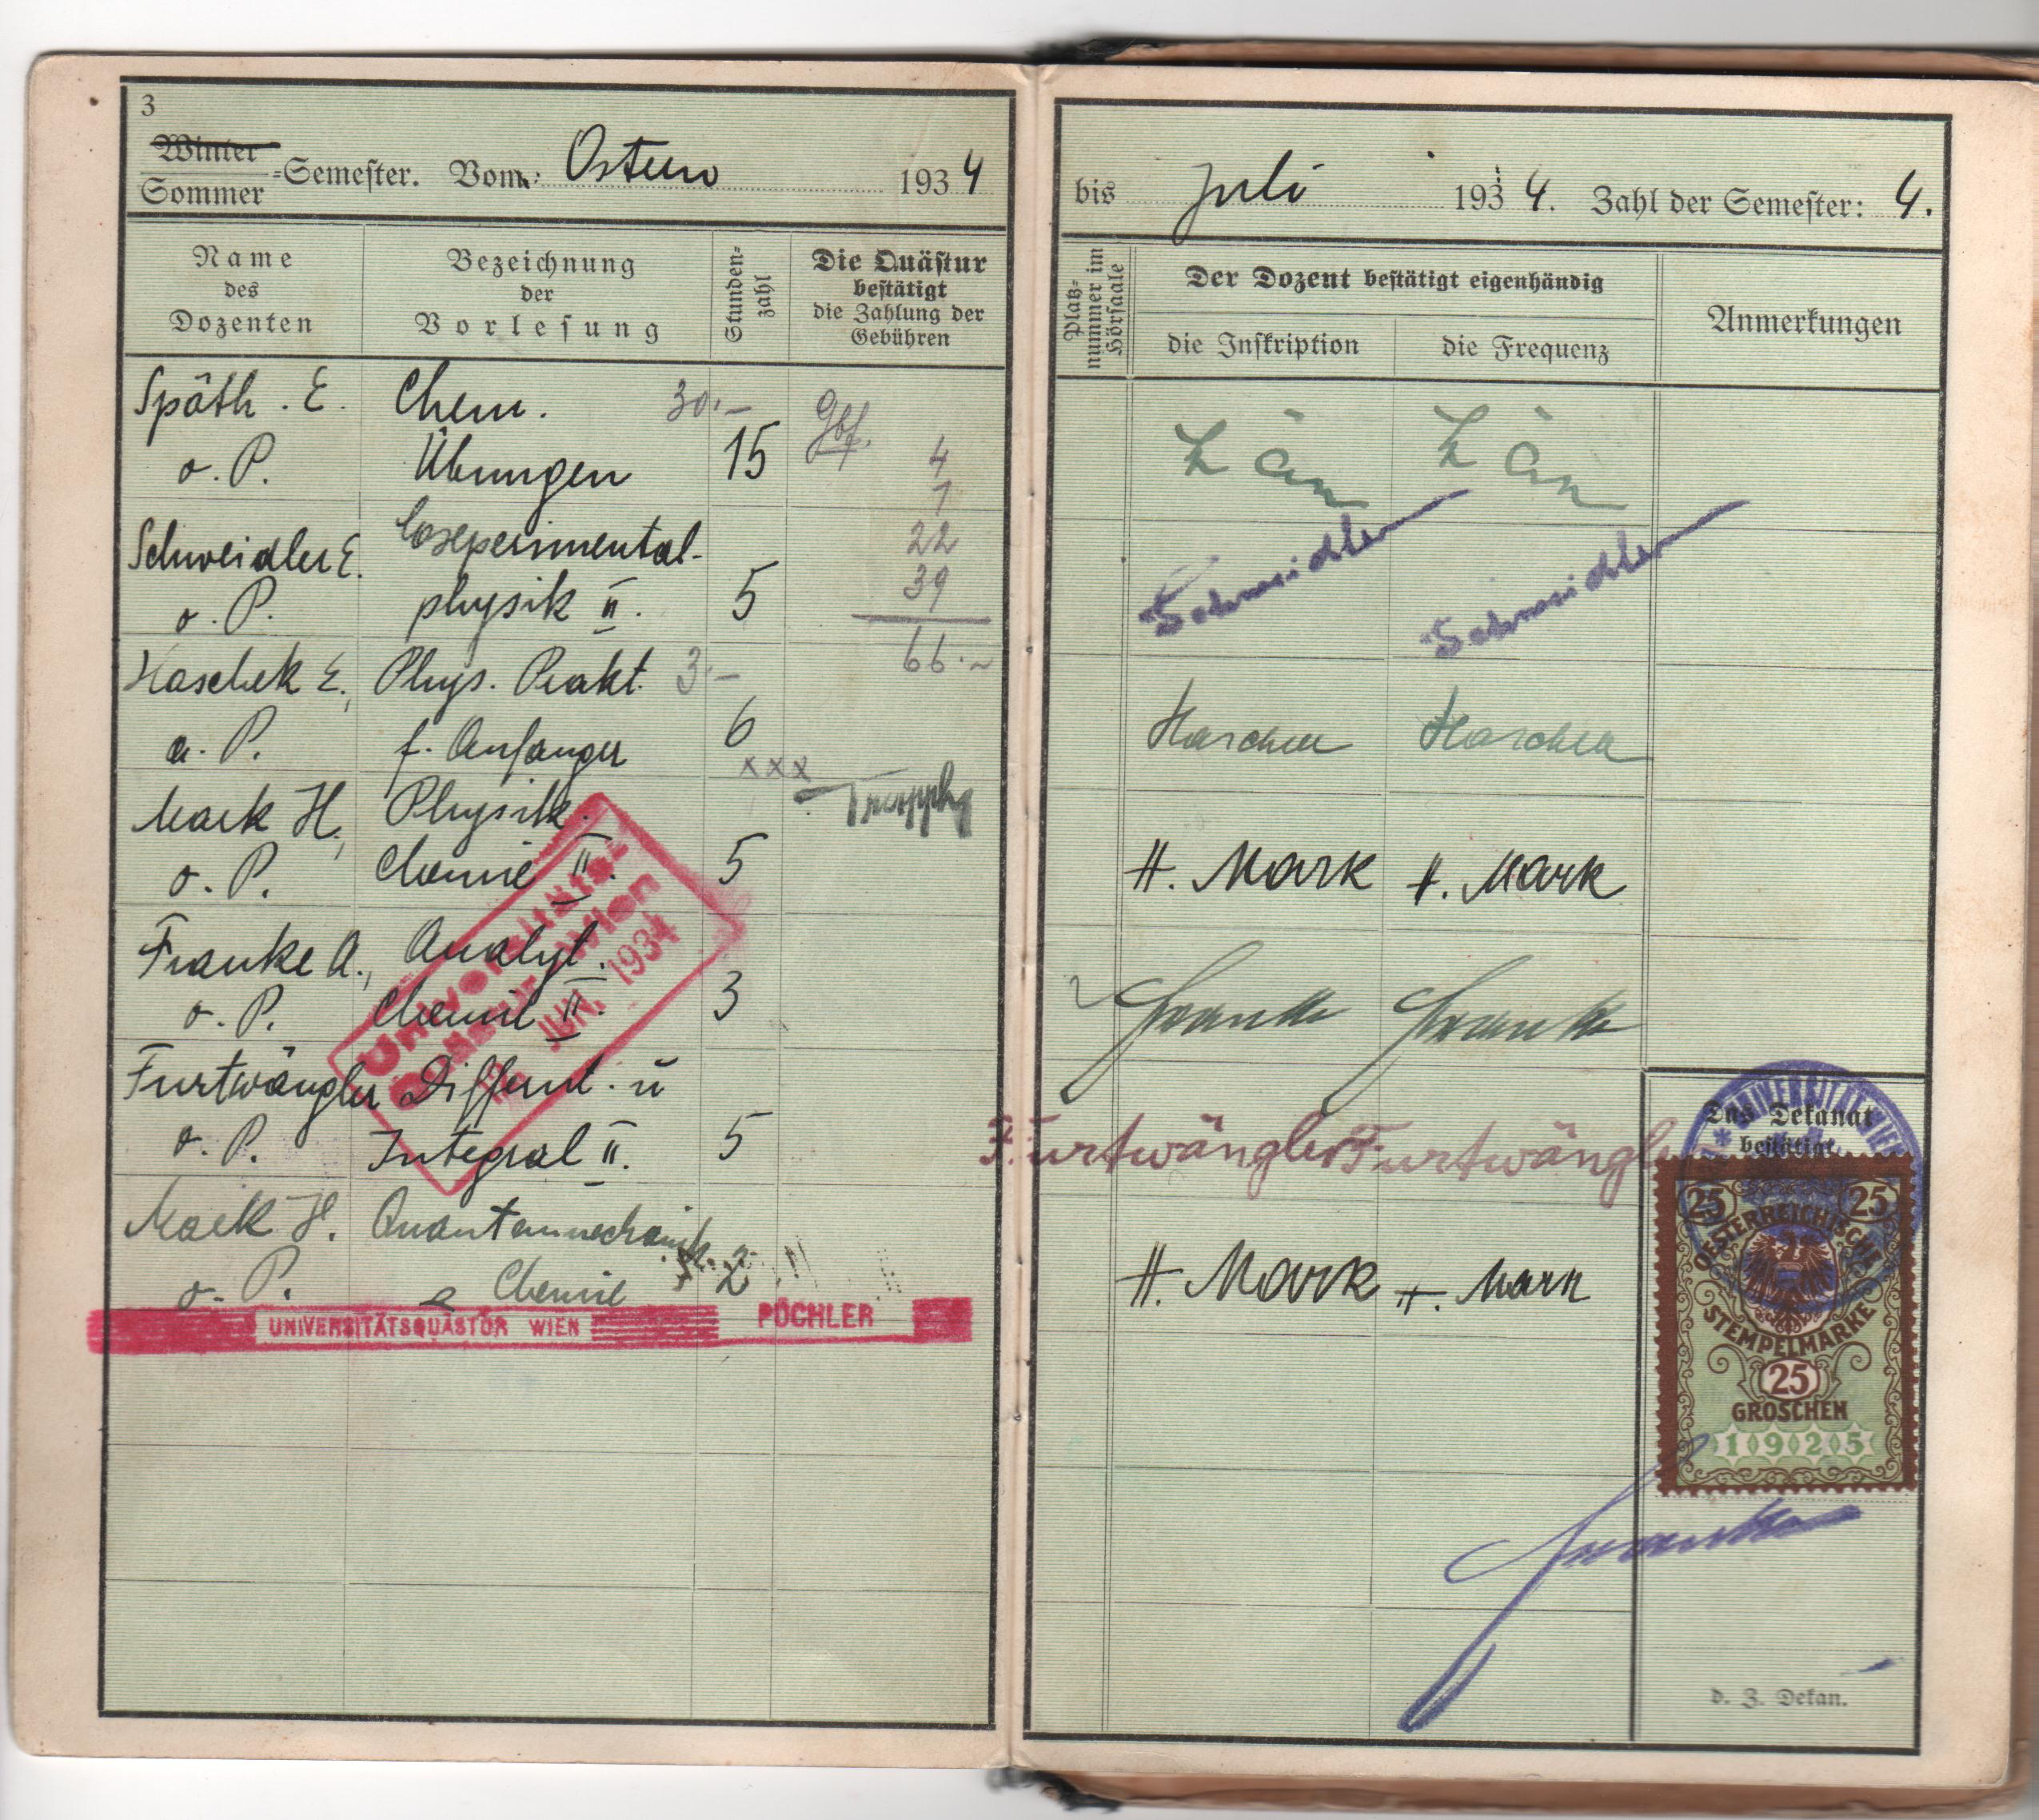 3
Winter
Sommer
=Semester. Vom: Ostern 1934
Name
des
Dozenten
Bezeichnung
der
Vorlesung
Stunden-
zahl
Die Quästur
bestätigt
die Zahlung der
Gebühren
Späth. E. Chem. 30.-
o. P. Übungen 15
4
7
22
39
66.-
Schweidler E. Experimental-
o. P. physik II. 5
Haschek E., Phys. Prakt. 3.-
a. P. f. Anfänger 6
xxx
Mark H., Physik.
o. P. Chemie II. 5
Franke A., Analyt.
o. P. Chemie II. 3
Furtwängler Different. u
o. P. Integral II. 5
Mark H. Quantenmechanik
o. P. Chemie 2
Universitäts-
Quästur Wien
JUNI 1934
UNIVERSITÄTSQUÄSTOR WIEN PÖCHLER
bis Juli 1934. Zahl der Semester: 4.
Platz-
nummer im
Hörsaale
Der Dozent bestätigt eigenhändig
die Inskription
die Frequenz
Anmerkungen
Schweidler Schweidler
H. Mark H. Mark
Franke Franke
Furtwängler Furtwängler
H. Mark H. Mark
UNIVERSITÄT WIEN
Das Dekanat
bestätigt
25 25
OESTERREICHISCHE
STEMPELMARKE
25
GROSCHEN
1925
Franke
d. Z. Dekan.